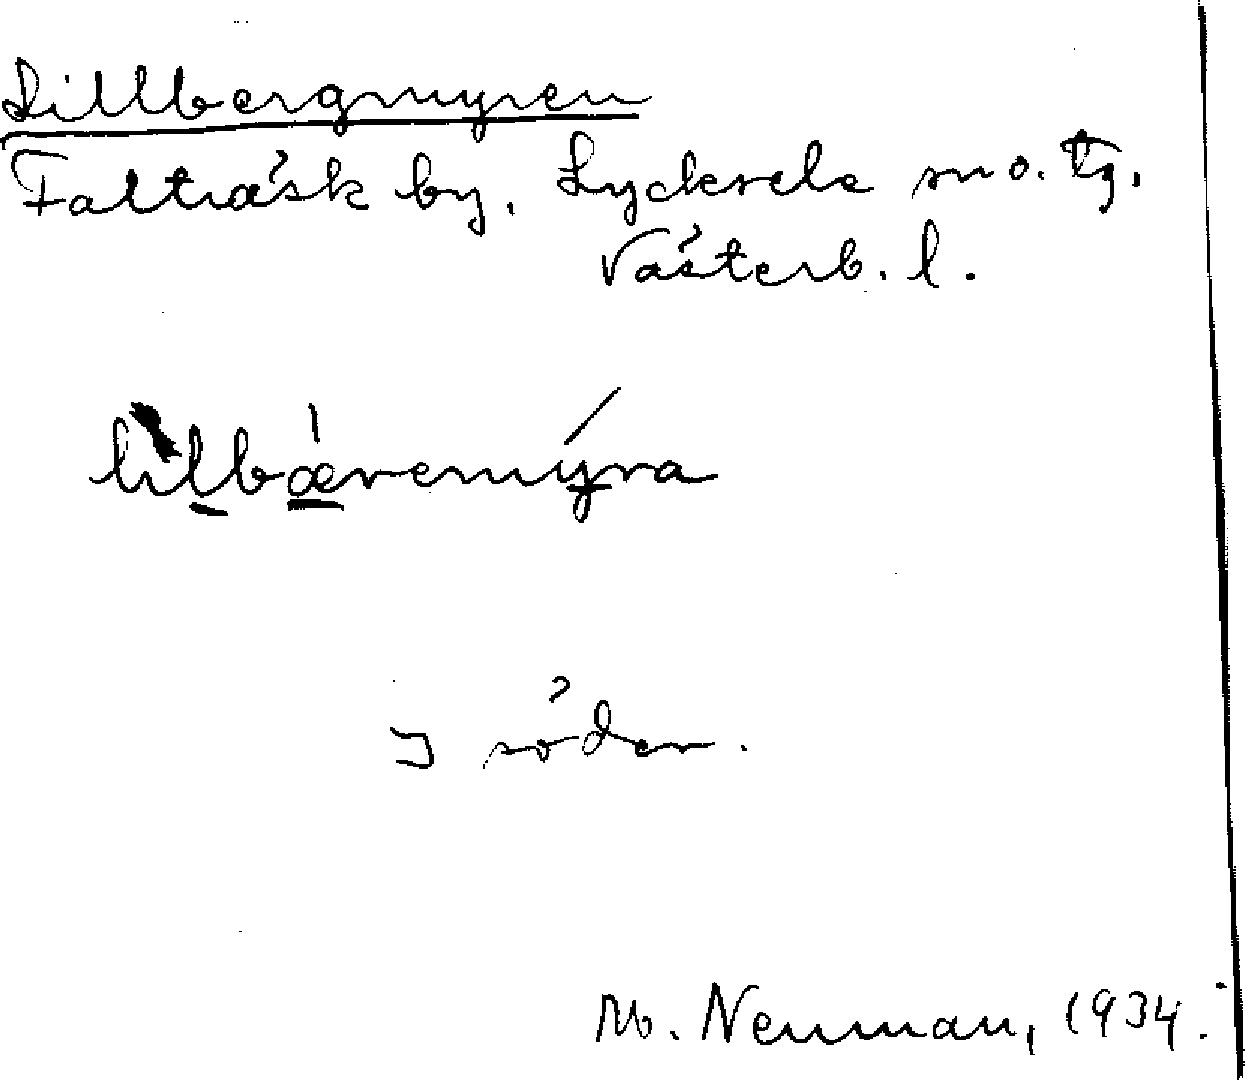 Lillbergmyren
Falträsk by. Lycksele sno. tg.
Västerb. l.
lilbæremýra
I söder.
M. Neuman, 1934.